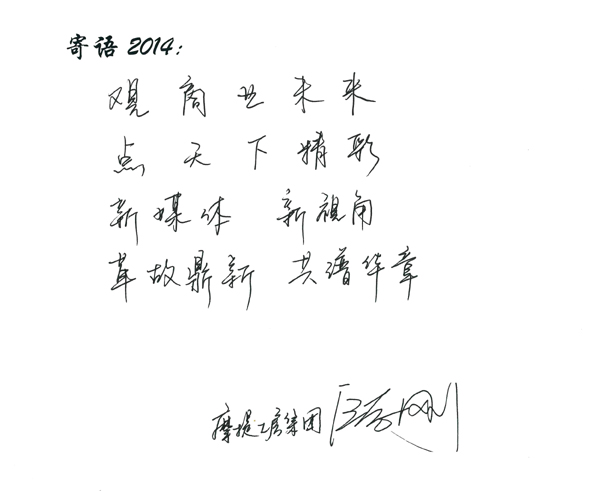 寄语 2014:
观商业未来
点天下精彩
新媒体 新视角
革故鼎新 共谱华章
摩提工房集团